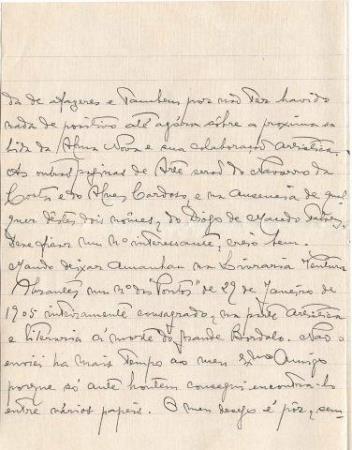 da de afazeres e tambem por não ter havido
nada de positivo até agóra sôbre a proxima sa-
hida da Alma Nova e sua colaboração artistica.
As outras paginas de Arte serão do Navarro da
Costa e do Alves Cardoso, e na ausencia de qual
quer dêstes dois nomes, do Diogo de Macedo
Deve ficar um nº interessante, creio bem.
Mando deixar amanhan na Livraria Ventura
Abrantes um nº dos "Pontos" de 29 de Janeiro de
1905 inteiramente consagrado, na parte artistica
e literaria á morte do grande Bordalo. Não o
enviei ha mais tempo ao meu Exmo Amigo
porque só ante hontem consegui encontra-lo
entre vários papeis. O meu desejo é pôr, sem-